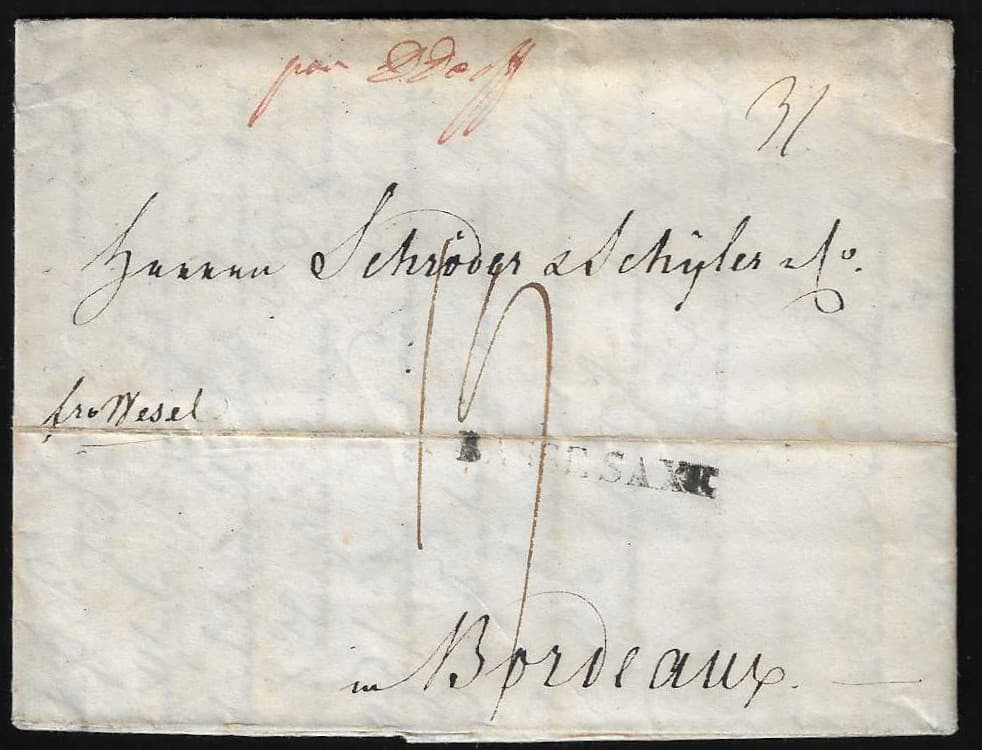 par DDorff
31
Herren Schröder & Schÿler & Co.
19
fro Wesel
BASSE SAXE
in Bordeaux.